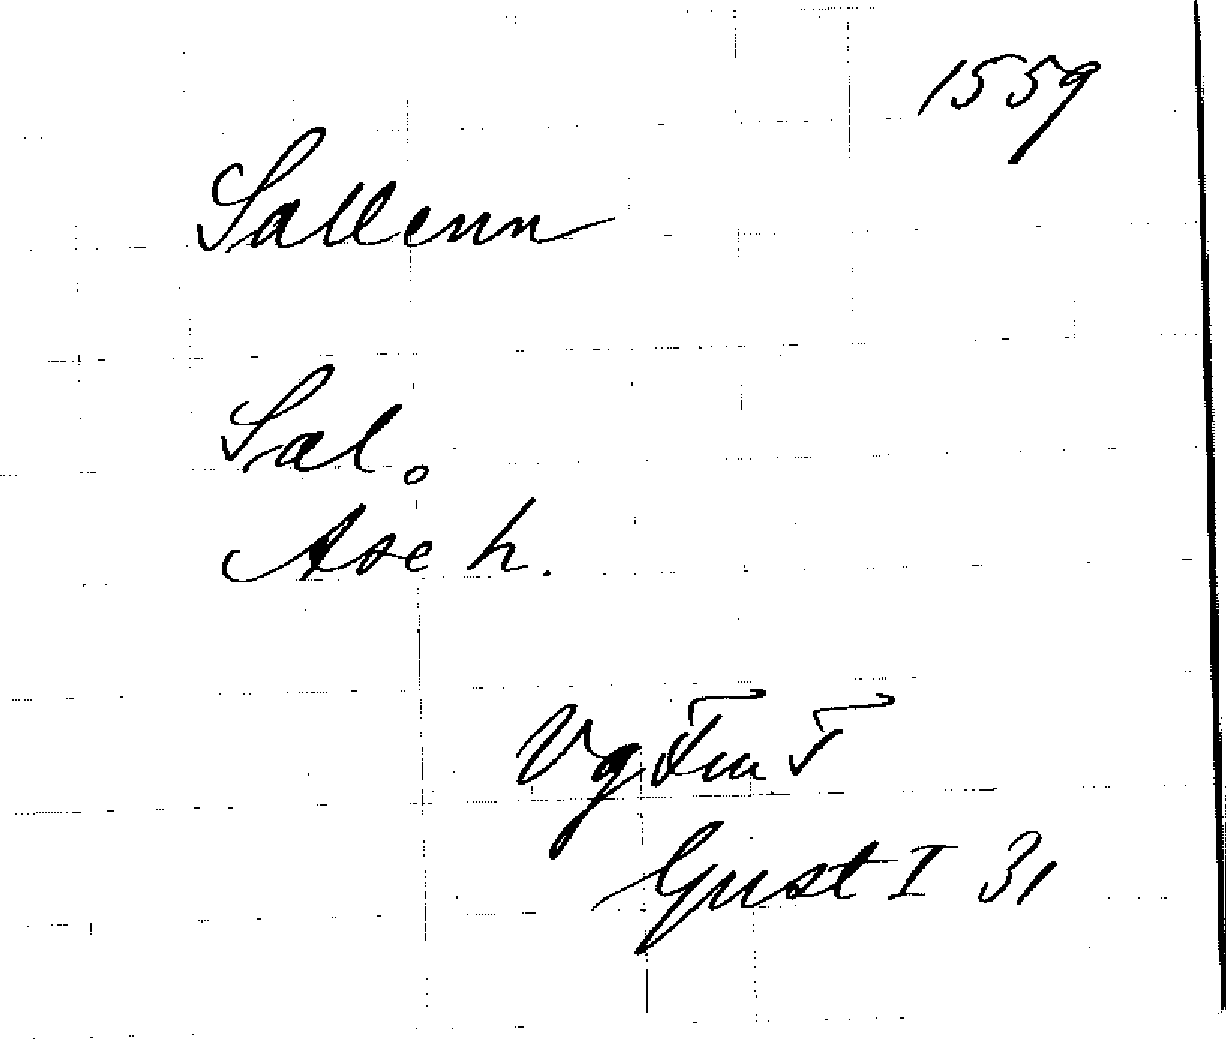 1559
Sallenn
Sal.
Ase h.
Vg Fm F
Gust I 31